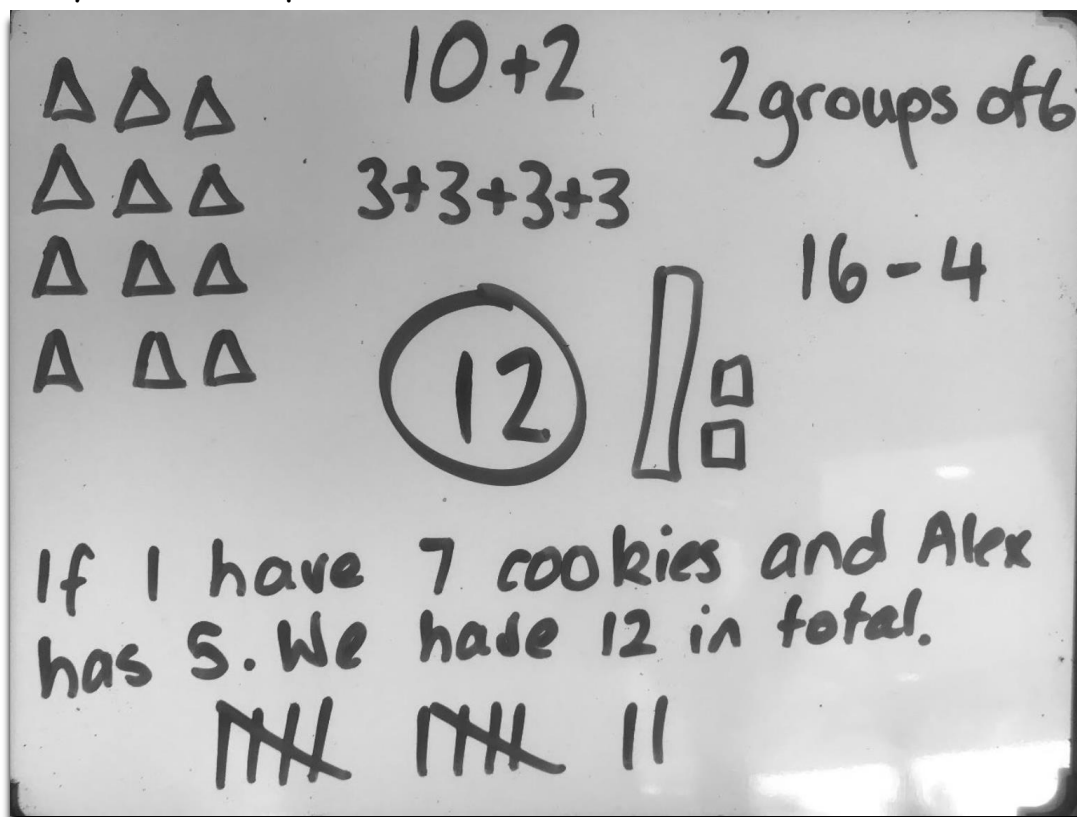 10+2
2 groups of 6
3+3+3+3
16-4
12
If I have 7 cookies and Alex
has 5. We have 12 in total.